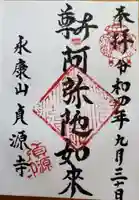 奉拝 令和四年九月三十日
本尊 阿弥陀如来
永康山 貞源寺